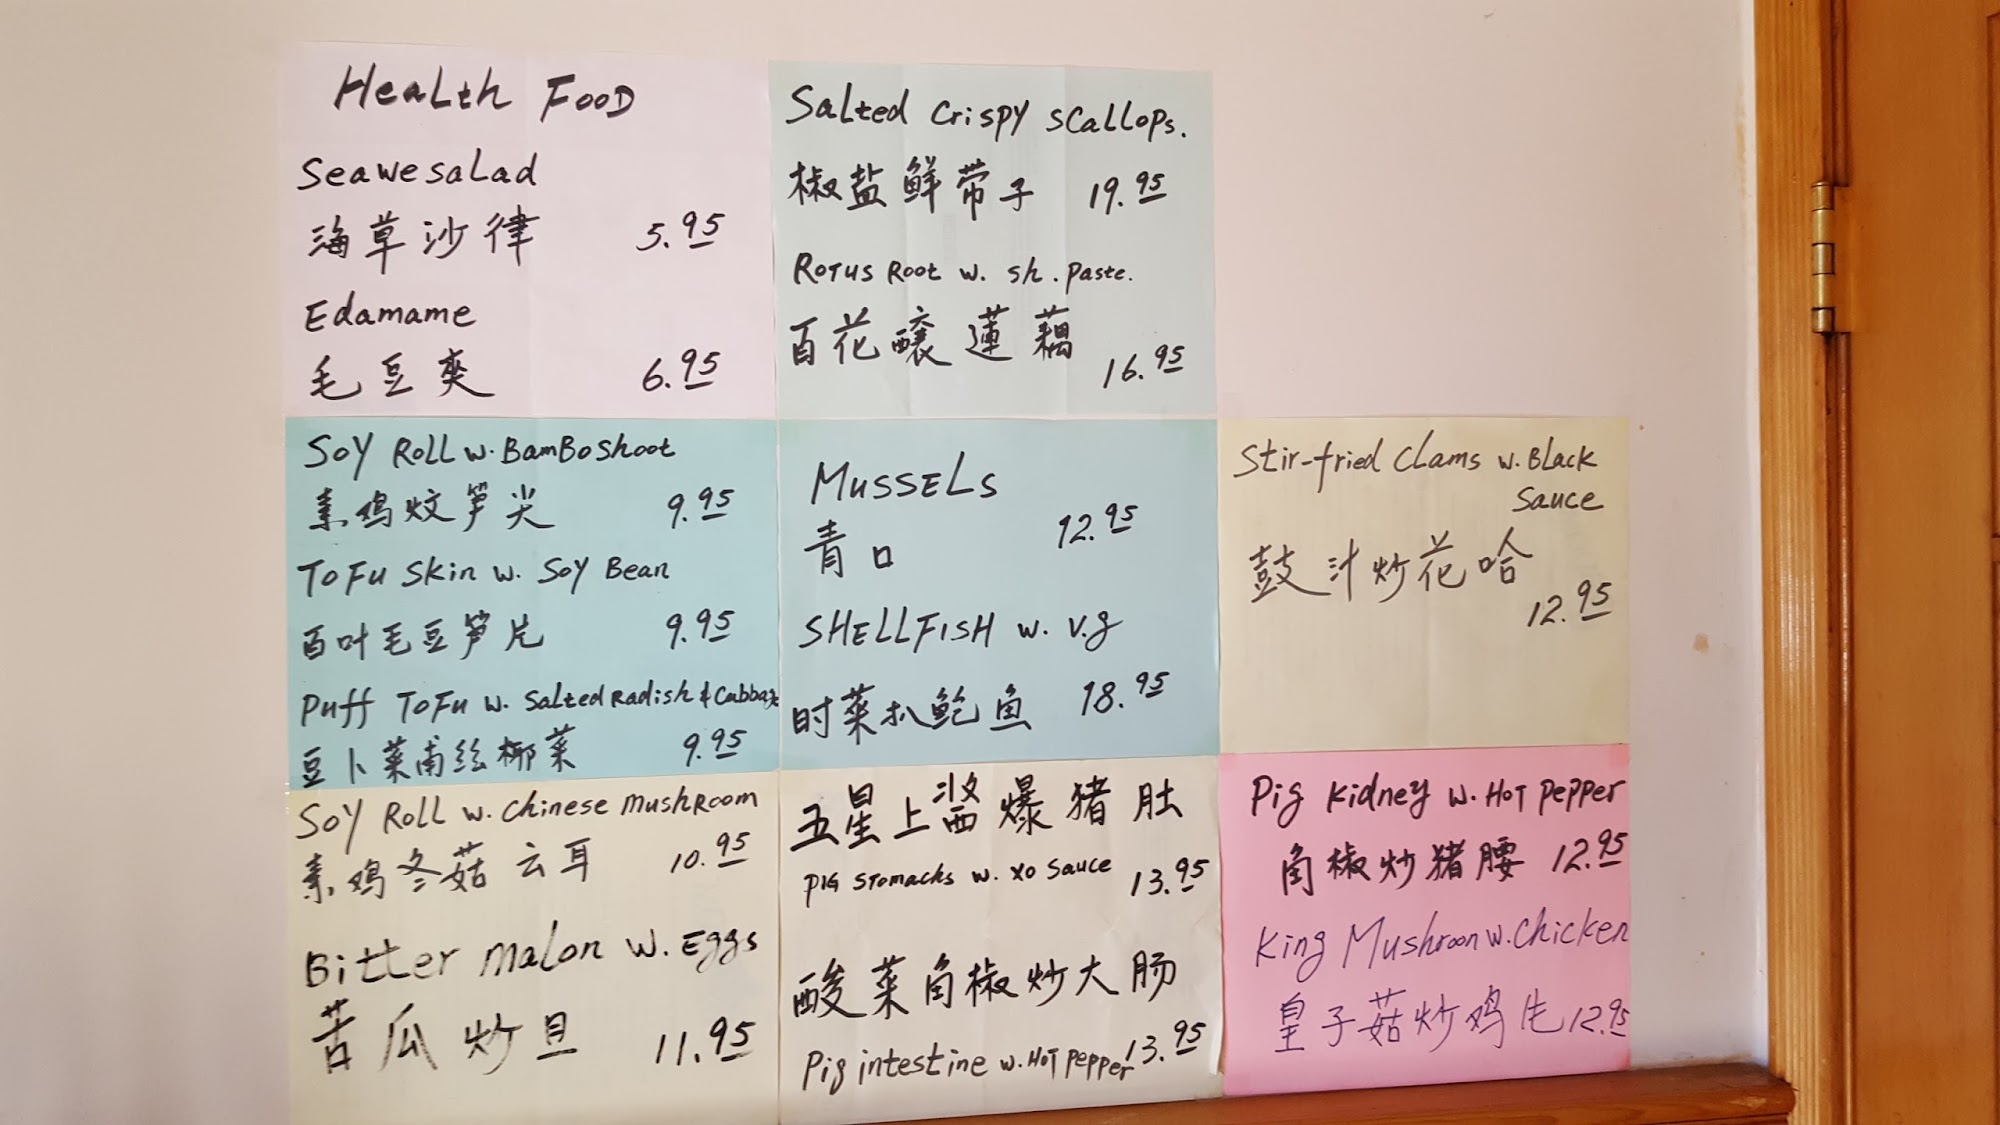 Health Food
Seawesalad
海草沙律 5.95
Edamame
毛豆夾 6.95
Salted Crispy Scallops.
椒盐鲜带子 19.95
Rotus Root w. sh. paste.
百花釀蓮藕 16.95
Soy Roll w. BamBoshoot
素鸡炆笋尖 9.95
ToFu Skin w. Soy Bean
百叶毛豆笋片 9.95
Puff ToFu w. Salted Radish & Cabbage
豆卜菜甫丝椰菜 9.95
Mussels
青口 12.95
SHELLFISH w. v.g
时菜扒鲍鱼 18.95
Stir-fried Clams w. Black
Sauce
鼓汁炒花哈
12.95
Soy Roll w. Chinese mushroom
素鸡冬菇云耳 10.95
Bitter malon w. Eggs
苦瓜炒旦 11.95
五星上酱爆猪肚
Pig Stomachs w. XO Sauce 13.95
酸菜角椒炒大肠
Pig intestine w. Hot pepper 13.95
Pig Kidney w. Hot pepper
角椒炒猪腰 12.95
King Mushroon w. Chicken
皇子菇炒鸡 12.95